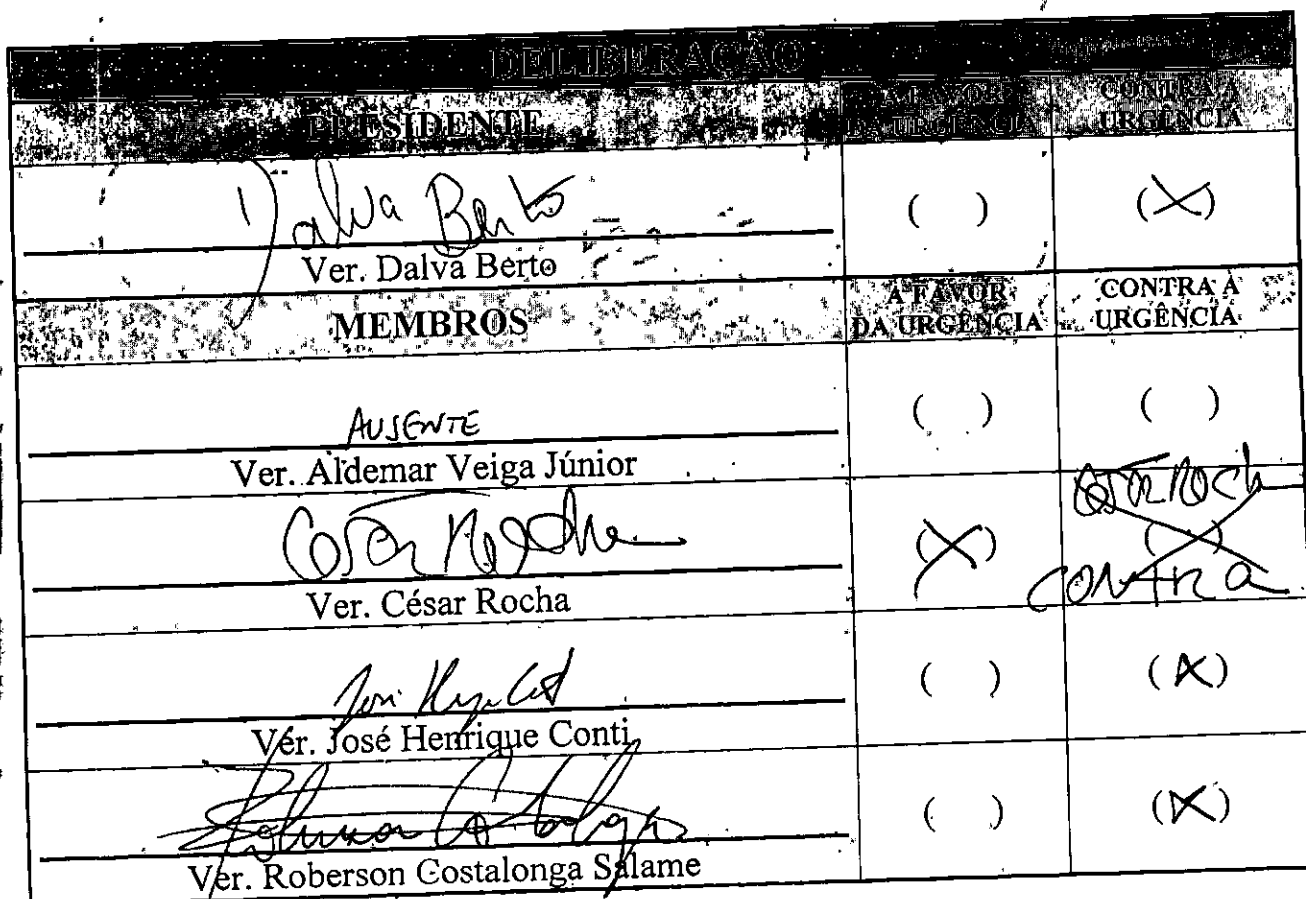 DELIBERAÇÃO
PRESIDENTE A FAVOR DA URGÊNCIA CONTRA À URGÊNCIA
Dalva Berto ( ) (X)
Ver. Dalva Berto
MEMBROS A FAVOR DA URGÊNCIA CONTRA À URGÊNCIA
AUSENTE ( ) ( )
Ver. Aldemar Veiga Júnior
César Rocha (X) César Rocha (X) CONTRA
Ver. César Rocha
( ) (X)
Ver. José Henrique Conti
( ) (X)
Ver. Roberson Costalonga Salame